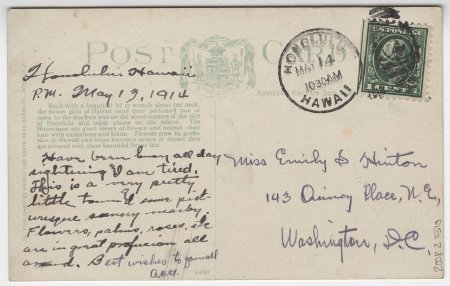 POST CARD
HONOLULU
MAY 14
10 30 AM
HAWAII
U.S. POSTAGE
1 CENT 1
Honolulu, Hawaii
P.M. May 13, 1914
Each with a beautiful lei or wreath about her neck,
the flower girls of Hawaii greet their purchased you
in the markets and on the street corners of the city
of Honolulu and other places on the island. The
Hawaiians are great lovers of flowers and bedeck their
hair with carnations and leis. Flowers grow in profu-
sion in Hawaii and when travelers arrive or depart they
are covered with these beautiful flower leis.
Have been busy all day
sightseeing & am tired.
This is a very pretty
little town & some pict-
uresque scenery nearby
Flowers, palms, roses, etc
are in great profusion all
around. Best wishes to you all
Miss Emily S. Hinton
143 Quincy Place, N.E,
Washington, D.C.